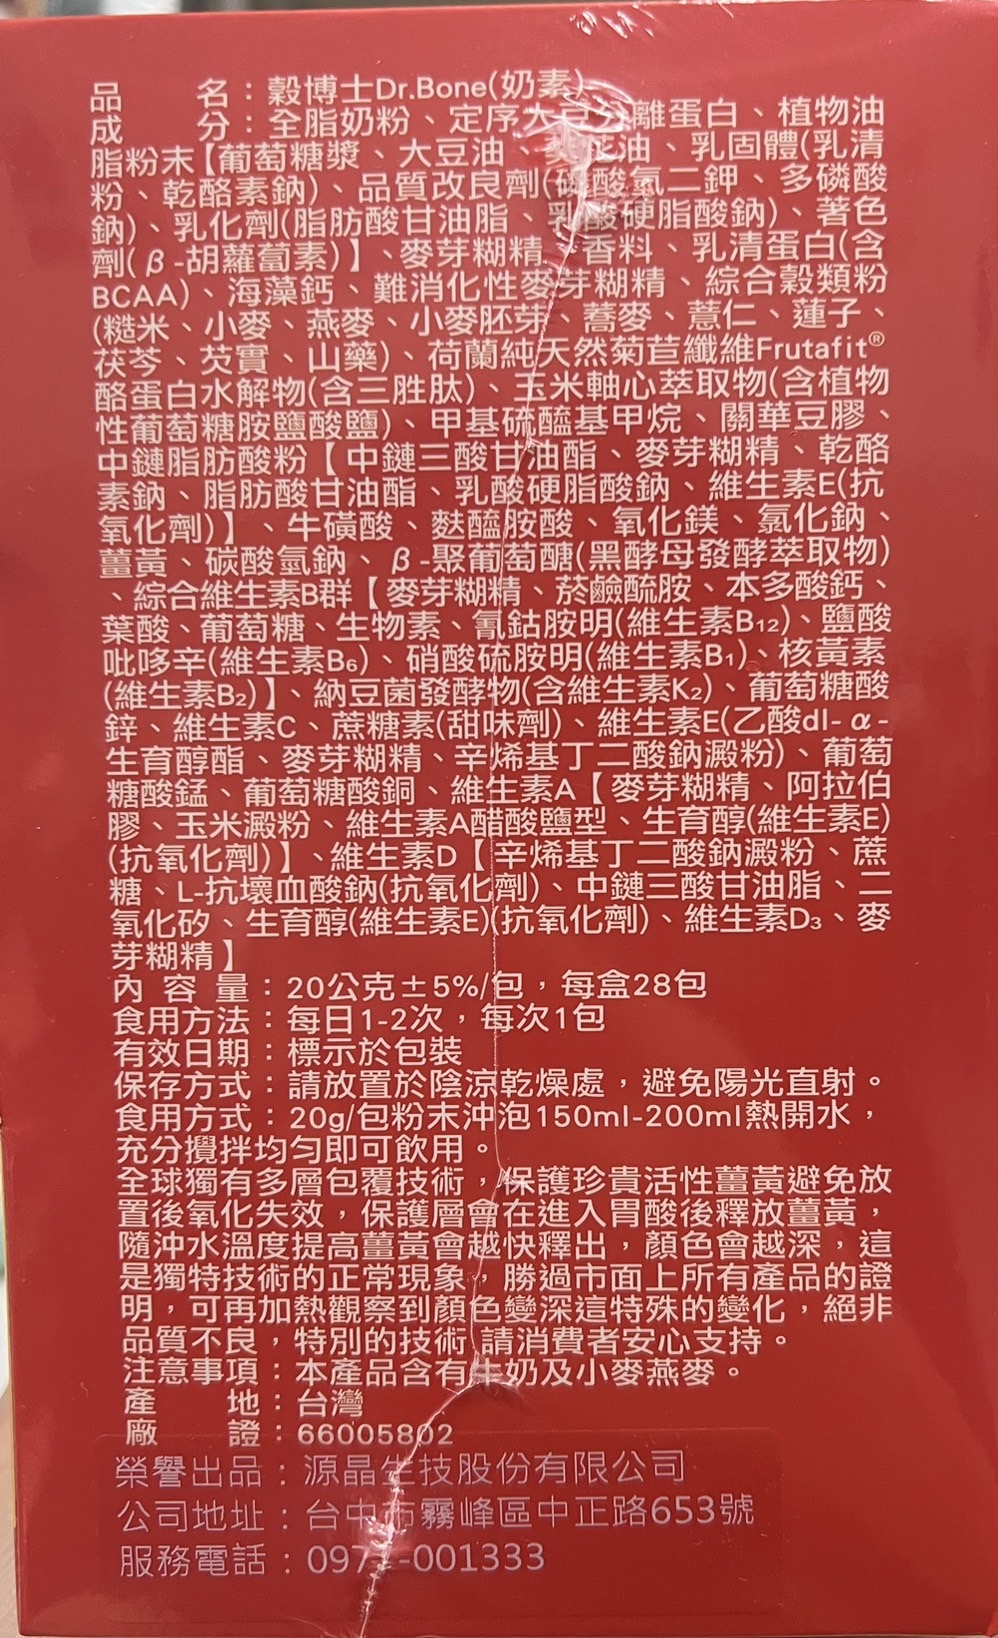 品名：穀博士Dr.Bone(奶素)
成分：全脂奶粉、定序大豆分離蛋白、植物油
脂粉末【葡萄糖漿、大豆油、油、乳固體(乳清
粉、乾酪素鈉)、品質改良劑(磷酸氫二鉀、多磷酸
鈉)、乳化劑(脂肪酸甘油脂、乳酸硬脂酸鈉)、著色
劑(β-胡蘿蔔素)】、麥芽糊精、香料、乳清蛋白(含
BCAA)、海藻鈣、難消化性麥芽糊精、綜合穀類粉
(糙米、小麥、燕麥、小麥胚芽、蕎麥、薏仁、蓮子、
茯苓、芡實、山藥)、荷蘭純天然菊苣纖維Frutafit®
酪蛋白水解物(含三胜肽)、玉米軸心萃取物(含植物
性葡萄糖胺鹽酸鹽)、甲基硫醯基甲烷、關華豆膠、
中鏈脂肪酸粉【中鏈三酸甘油酯、麥芽糊精、乾酪
素鈉、脂肪酸甘油酯、乳酸硬脂酸鈉、維生素E(抗
氧化劑)】、牛磺酸、麩醯胺酸、氧化鎂、氯化鈉、
薑黃、碳酸氫鈉、β-聚葡萄醣(黑酵母發酵萃取物)
、綜合維生素B群【麥芽糊精、菸鹼酼胺、本多酸鈣、
葉酸、葡萄糖、生物素、氰鈷胺明(維生素B₁₂)、鹽酸
吡哆辛(維生素B₆)、硝酸硫胺明(維生素B₁)、核黃素
(維生素B₂)】、納豆菌發酵物(含維生素K₂)、葡萄糖酸
鋅、維生素C、蔗糖素(甜味劑)、維生素E(乙酸dl-α-
生育醇酯、麥芽糊精、辛烯基丁二酸鈉澱粉)、葡萄
糖酸錳、葡萄糖酸銅、維生素A【麥芽糊精、阿拉伯
膠、玉米澱粉、維生素A醋酸鹽型、生育醇(維生素E)
(抗氧化劑)】、維生素D【辛烯基丁二酸鈉澱粉、蔗
糖、L-抗壞血酸鈉(抗氧化劑)、中鏈三酸甘油脂、二
氧化矽、生育醇(維生素E)(抗氧化劑)、維生素D₃、麥
芽糊精】
內容量：20公克±5%/包，每盒28包
食用方法：每日1-2次，每次1包
有效日期：標示於包裝
保存方式：請放置於陰涼乾燥處，避免陽光直射。
食用方式：20g/包粉末沖泡150ml-200ml熱開水，
充分攪拌均勻即可飲用。
全球獨有多層包覆技術，保護珍貴活性薑黃避免放
置後氧化失效，保護層會在進入胃酸後釋放薑黃，
隨沖水溫度提高薑黃會越快釋出，顏色會越深，這
是獨特技術的正常現象，勝過市面上所有產品的證
明，可再加熱觀察到顏色變深這特殊的變化，絕非
品質不良，特別的技術，請消費者安心支持。
注意事項：本產品含有牛奶及小麥燕麥。
產地：台灣
廠證：66005802
榮譽出品：源晶生技股份有限公司
公司地址：台中市霧峰區中正路653號
服務電話：-001333